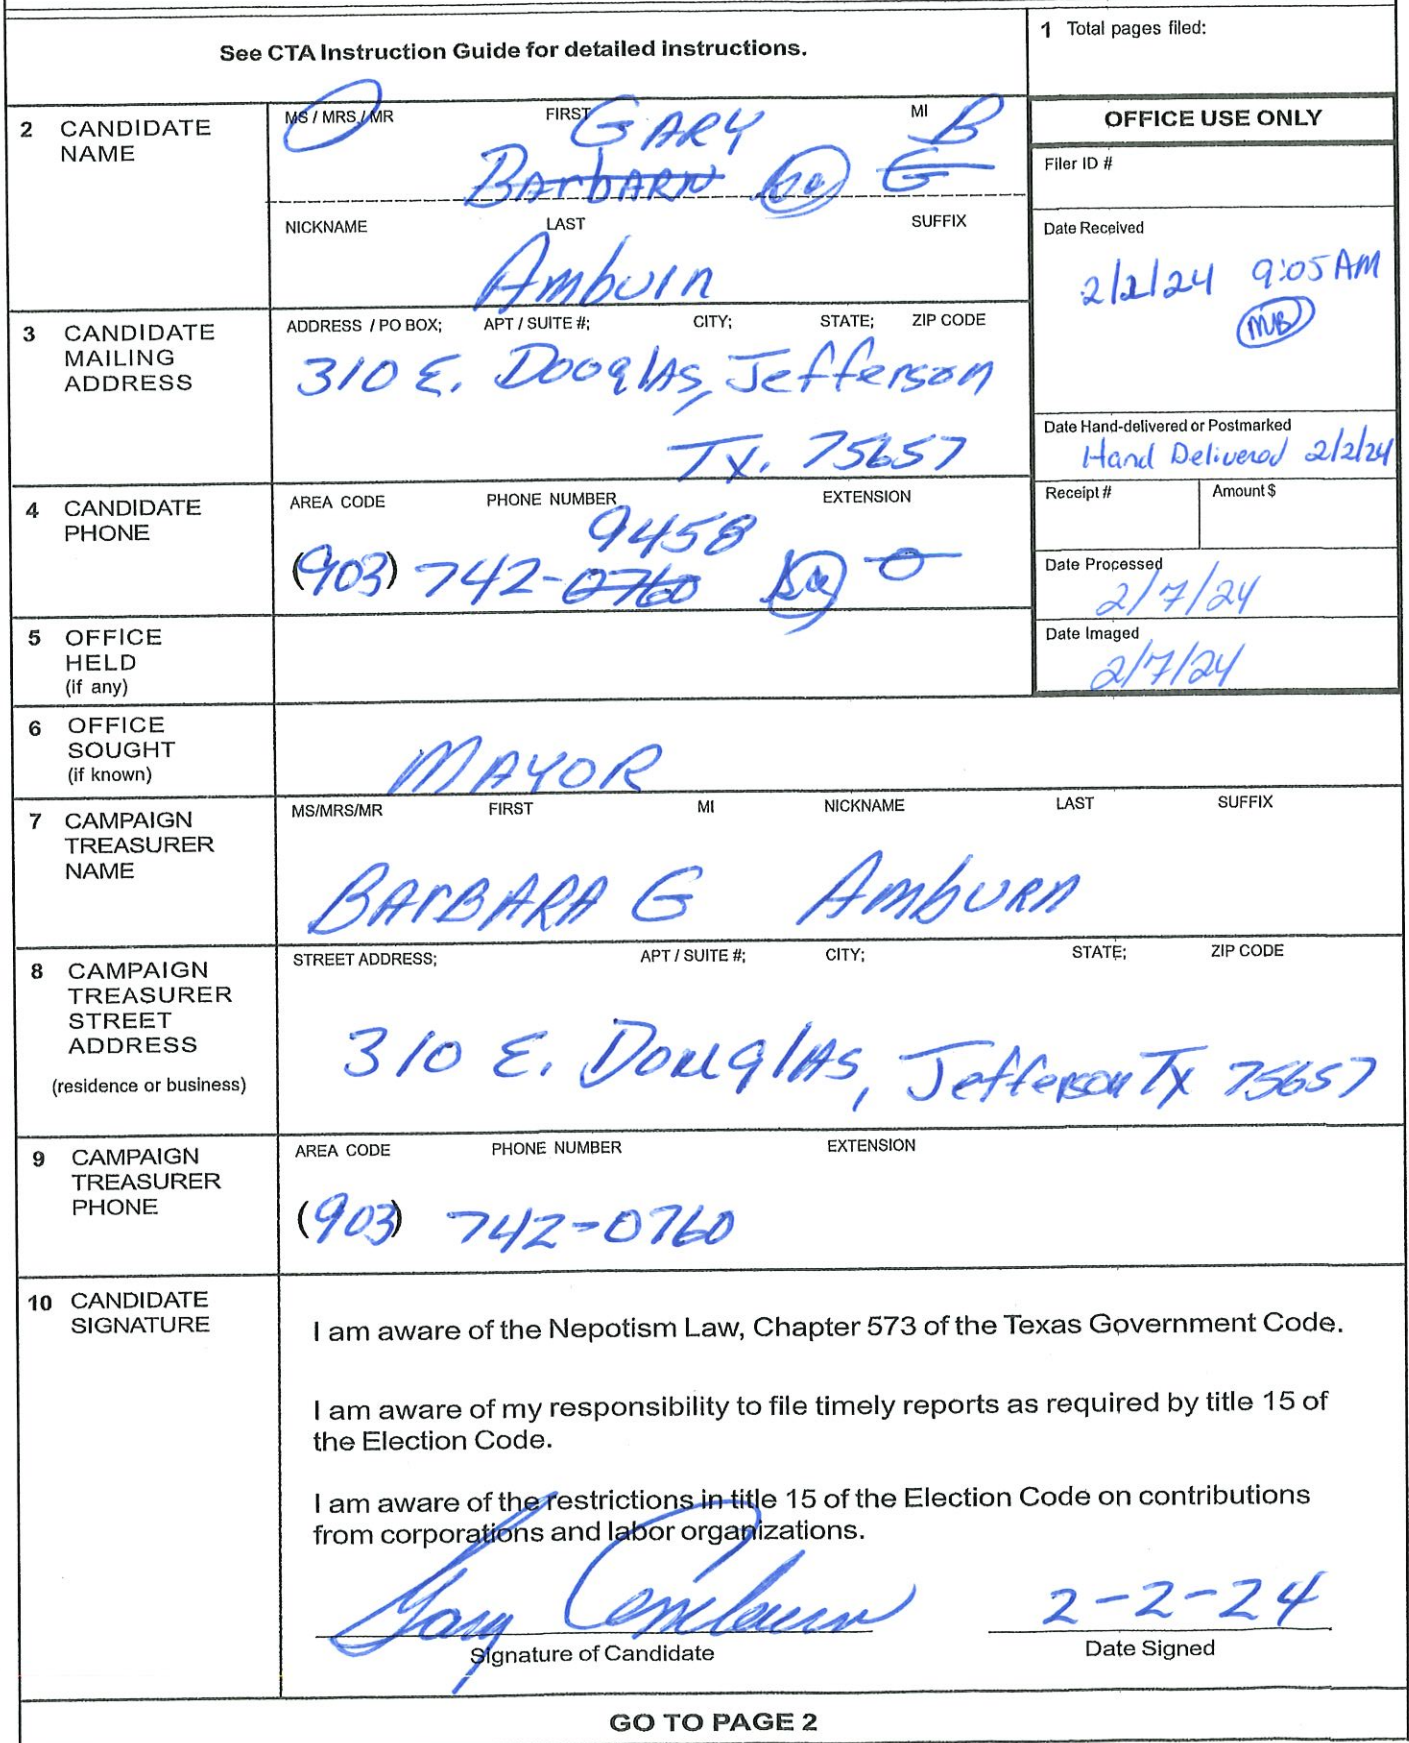 See CTA Instruction Guide for detailed instructions.
1 Total pages filed:
2 CANDIDATE NAME
MS / MRS / MR FIRST MI
GARY B
BArbARA G
NICKNAME LAST SUFFIX
Amburn
OFFICE USE ONLY
Filer ID #
Date Received
2/2/24 9:05 AM
MB
3 CANDIDATE MAILING ADDRESS
ADDRESS / PO BOX; APT / SUITE #; CITY; STATE; ZIP CODE
310 E. DouglAs, Jefferson
Tx. 75657
Date Hand-delivered or Postmarked
Hand Delivered 2/2/24
Receipt # Amount $
4 CANDIDATE PHONE
AREA CODE PHONE NUMBER EXTENSION
9458
(903) 742-0760
Date Processed
2/7/24
Date Imaged
2/7/24
5 OFFICE HELD (if any)
6 OFFICE SOUGHT (if known)
MAYOR
7 CAMPAIGN TREASURER NAME
MS/MRS/MR FIRST MI NICKNAME LAST SUFFIX
BArBARA G AmbURn
8 CAMPAIGN TREASURER STREET ADDRESS (residence or business)
STREET ADDRESS; APT / SUITE #; CITY; STATE; ZIP CODE
310 E. DouglAs, Jefferson Tx 75657
9 CAMPAIGN TREASURER PHONE
AREA CODE PHONE NUMBER EXTENSION
(903) 742-0760
10 CANDIDATE SIGNATURE
I am aware of the Nepotism Law, Chapter 573 of the Texas Government Code.
I am aware of my responsibility to file timely reports as required by title 15 of
the Election Code.
I am aware of the restrictions in title 15 of the Election Code on contributions
from corporations and labor organizations.
Gary Amburn 2-2-24
Signature of Candidate Date Signed
GO TO PAGE 2